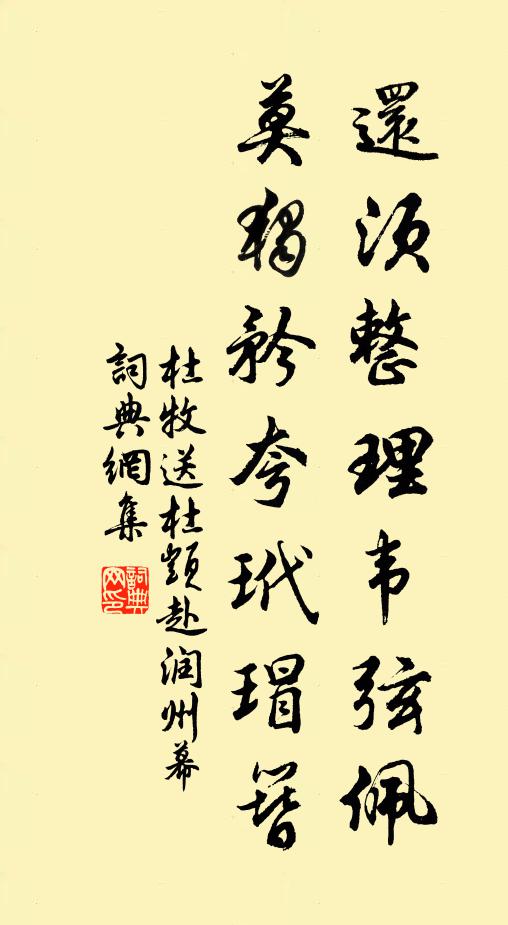 還須整理韦弦佩
莫獨矜夸玳瑁簪
杜牧送杜顗赴润州幕
詞典網集
詞典网印